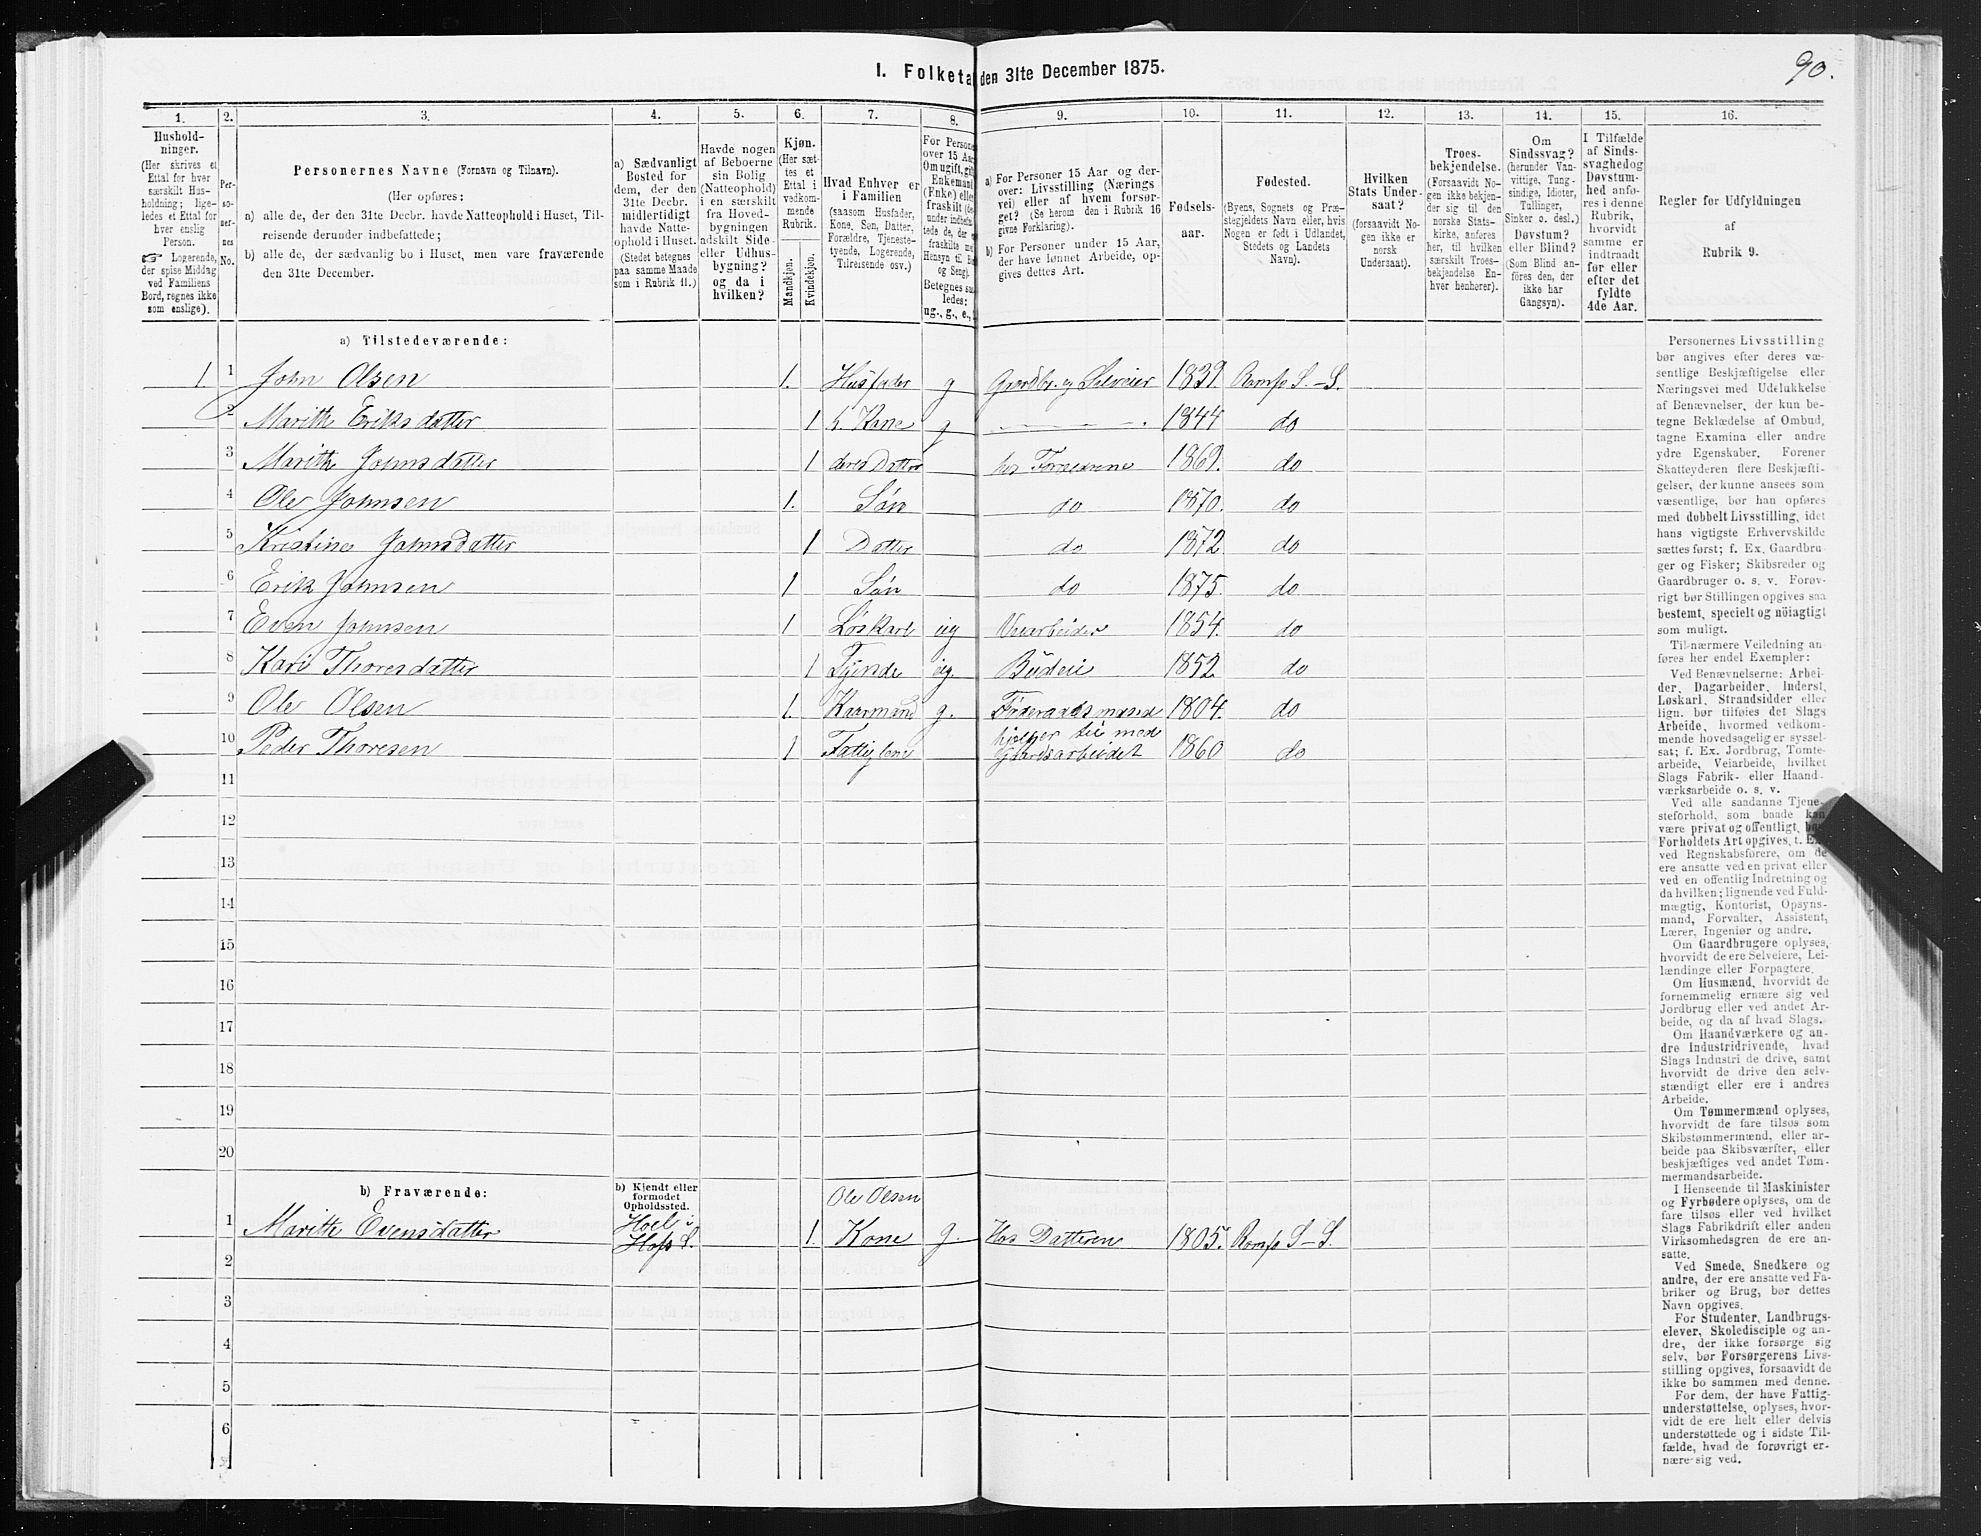 90.
I. Folketal den 31te December 1875.
1. 2. 3. 4. 5. 6. 7. 8. 9. 10. 11. 12. 13. 14. 15. 16.
Personernes Navne (Fornavn og Tilnavn).
(Her opføres:
a) alle de, der den 31te Decbr. havde Natteophold i Huset, Tilreisende derunder indbefattede;
b) alle de, der sædvanlig bo i Huset, men vare fraværende den 31te December.
a) Sædvanligt Bosted for dem, der den 31te Decbr. midlertidigt havde Natteophold i Huset. (Stedet betegnes paa samme Maade som i Rubrik 11.)
Kjøn. (Her sættes et Ettal i vedkommende Rubrik.
Mandkjøn. Kvindekjøn.
Hvad Enhver er i Familien (saasom Husfader, Kone, Søn, Datter, Forældre, Tjenestetyende, Logerende, Tilreisende osv.)
a) For Personer 15 Aar og derover: Livsstilling (Næringsvei) eller af hvem forsørget? (Se herom den i Rubrik 16 givne Forklaring).
b) For Personer under 15 Aar, der have lønnet Arbeide, opgives dettes Art.
Fødselsaar.
Fødested.
(Byens, Sognets og Præstegjeldets Navn eller, hvis Nogen er født i Udlandet, Stedets og Landets Navn).
Hvilken Stats Undersaat?
(forsaavidt Nogen ikke er norsk Undersaat).
Troesbekjendelse. (Forsaavidt Nogen ikke bekjender sig til den norske Statskirke, anføres her, til hvilken særskilt Troesbekjendelse Enhver henhører).
Om Sindssvag? (herunder Vanvittige, Tungsindige, Idioter, Tullinger, Sinker o. desl.) Døvstum? eller Blind? (Som Blind anføres den, der ikke har Gangsyn).
I Tilfælde af Sindssvaghed og Døvstumhed anføres i denne Rubrik, hvorvidt samme er indtraadt før eller efter det fyldte 4de Aar.
Regler for Udfyldningen af Rubrik 9.
a) Tilstedeværende:
1 1 John Olsen 1. Husfader g Gaardbr. og Selveier 1839. Romfo S. - S.
2 Marith Eriksdatter 1 h. Kone g 1844 do
3 Marith Johnsdatter 1 deres Datter hos Forældrene 1869. do
4 Ole Johnsen 1. Søn do 1870. do
5 Kristine Johnsdatter 1 Datter do 1872 do
6 Erik Johnsen 1 Søn do 1875. do
7 Even Johnsen 1 Løskarl ug Veiarbeider 1854. do
8 Kari Thoresdatter 1 Tjende ug. Budeie 1852. do
9 Ole Olsen 1. Kaarmand g. Føderaadsmand 1804. do
10 Peder Thoresen 1 Fattiglem hjelper til med Gaardsarbeidet 1860 do
11
12
13
14
15
16
17
18
19
20
b) Fraværende:
b) Kjendt eller formodet Opholdssted.
Ole Olsen
1 Marith Evensdatter Hoel i Hofs S. 1. Kone g. Hos Datteren 1805. Romfo S - S.
2
3
4
5
6
Personernes Livsstilling
bør angives efter deres væ-
sentlige Beskjæftigelse eller
Næringsvei med Udelukkelse
af Benævnelser, der kun be-
tegne Beklædelse af Ombud,
tagne Examina eller andre
ydre Egenskaber. Forener
Skatteyderen flere Beskjæfti-
gelser, der kunne ansees som
væsentlige, bør han opføres
med dobbelt Livsstilling, idet
hans vigtigste Erhvervskilde
sættes først; f. Ex. Gaardbru-
ger og Fisker; Skibsreder og
Gaardbruger o. s. v. Forøv-
rigt bør Stillingen opgives saa
bestemt, specielt og nöiagtigt
som muligt.
Til nærmere Veiledning an-
føres her endel Exempler:
Ved Benævnelserne: Arbei-
der, Dagarbeider, Inderst,
Løskarl, Strandsidder eller
lign. bør tilføies det Slags
Arbeide, hvormed vedkom-
mende hovedsagelig er syssel-
sat; f. Ex. Jordbrug, Tomte-
arbeide, Veiarbeide, hvilket
Slags Fabrik- eller Haand-
værksarbeide o. s. v.
Ved alle saadanne Tjene-
steforhold, som baade kan
være privat og offentligt, bør
Forholdets Art opgives, t. Ex.
ved Regnskabsførere, om de
ere ansatte ved en privat eller
ved en offentlig Indretning og
da hvilken; lignende ved Fuld-
mægtig, Kontorist, Opsyns-
mand, Forvalter, Assistent,
Lærer, Ingeniør og andre.
Om Gaardbrugere oplyses,
hvorvidt de ere Selveiere, Lei-
lændinge eller Forpagtere.
Om Husmænd, hvorvidt de
fornemmelig ernære sig ved
Jordbrug eller ved andet Ar-
beide, og da af hvad Slags.
Om Haandværkere og an-
dre Industridrivende, hvad
Slags Industri de drive, samt
hvorvidt de drive den selv-
stændigt eller ere i andres
Arbeide.
Om Tømmermænd oplyses,
hvorvidt de fare tilsøs som
Skibstømmermænd, eller ar-
beide paa Skibsværfter, eller
beskjæftiges ved andet Tøm-
mermandsarbeide.
I Henseende til Maskinister
og Fyrbødere oplyses, om de
fare tilsøs eller ved hvilket
Slags Fabrikdrift eller anden
Virksomhedsgren de ere an-
satte.
Ved Smede, Snedkere og
andre, der ere ansatte ved Fa-
briker og Brug, bør dettes
Navn opgives.
For Studenter, Landbrugs-
elever, Skoledisciple og an-
dre, der ikke forsørge sig
selv, bør Forsørgerens Livs-
stilling opgives, forsaavidt de
ikke bo sammen med denne.
For dem, der have Fattig-
understøttelse, oplyses, hvor-
vidt de ere helt eller delvis
understøttede og i sidste Til-
fælde, hvad de forøvrigt er-
nære sig ved.